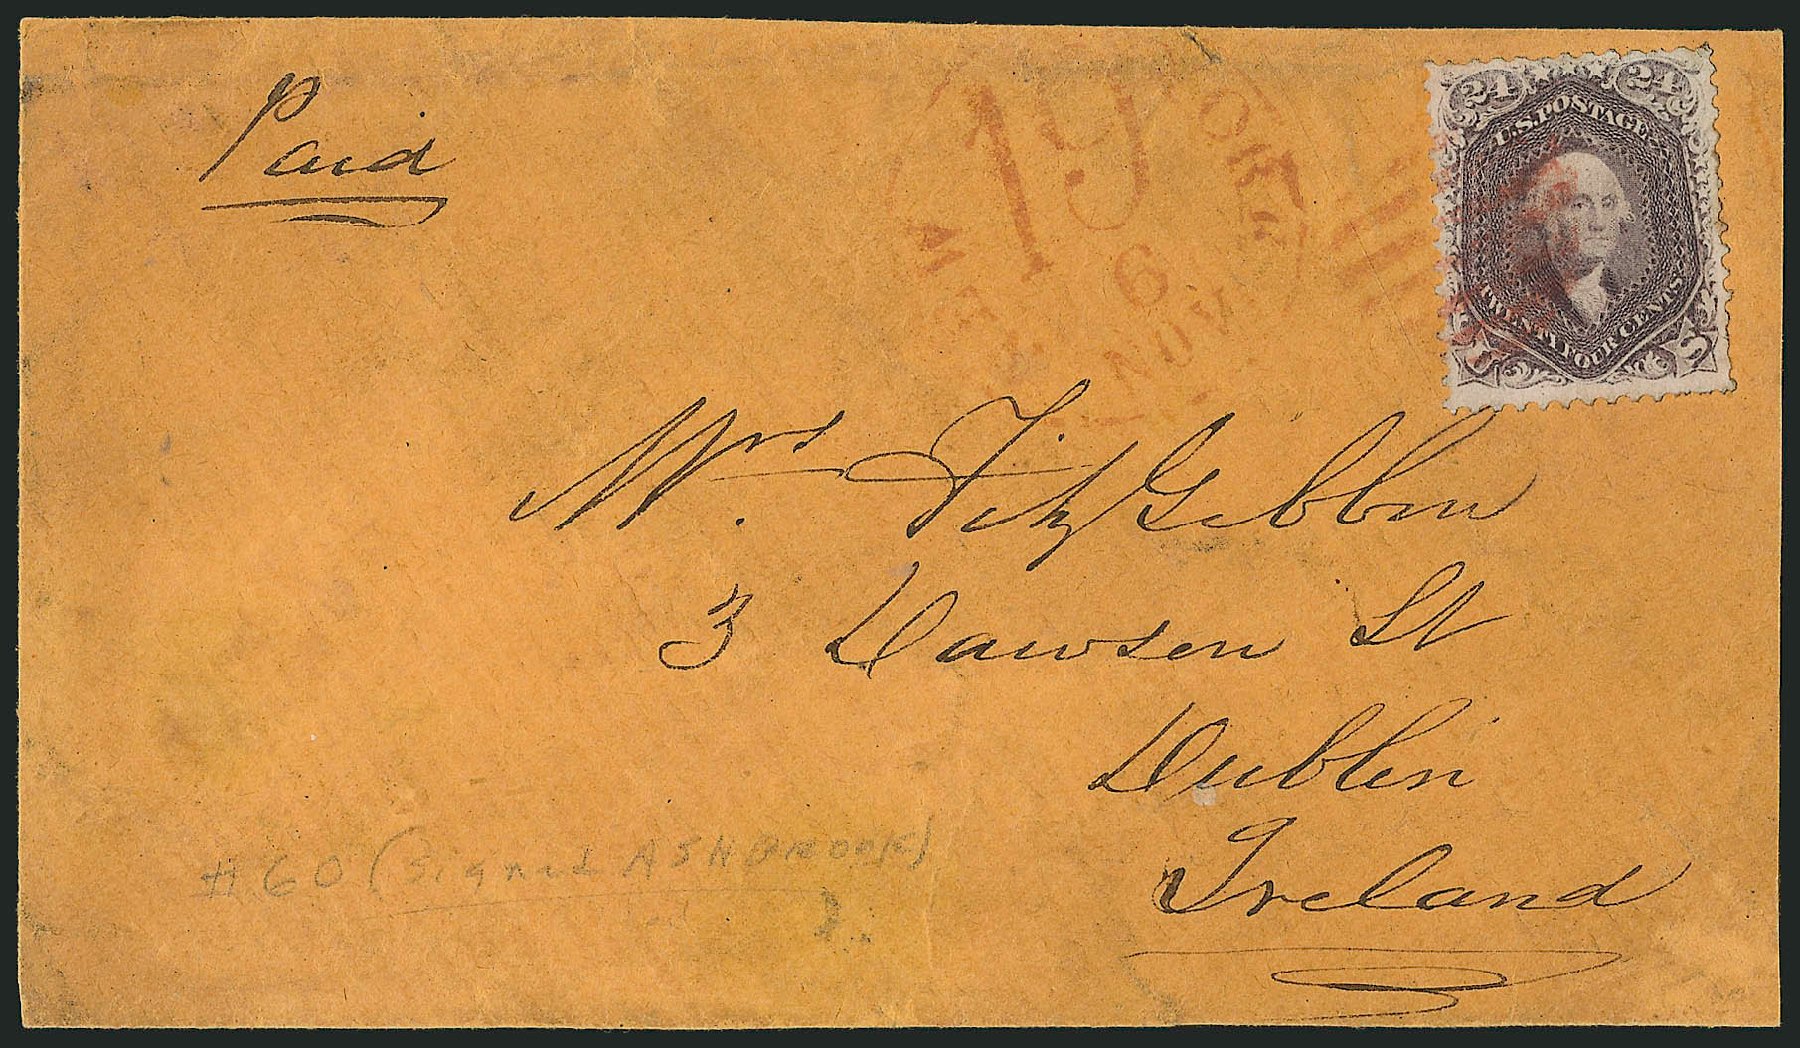 Paid
19
NEW YORK
6
NOV
24 24
U.S. POSTAGE
TWENTY FOUR CENTS.
U S
Mrs. FitzGibbon
3 Dawson St
Dublin
Ireland
#60 (Signed ASHBROOK)